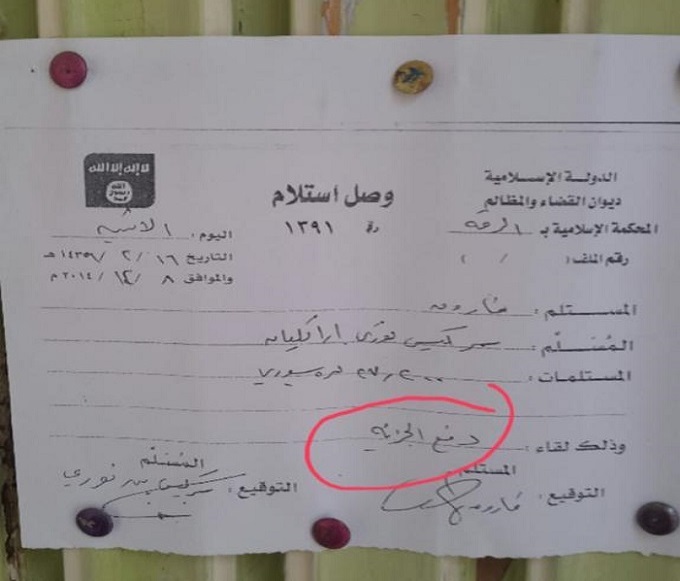 الدولة الإسلامية
ديوان القضاء والمظالم
المحكمة الإسلامية بـ الرقة
رقم الملف: ( / )
وصل استلام
١٣٩١
لا إله إلا الله
الله
رسول
محمد
اليوم: الاثنين
التاريخ ١٦ / ٢ / ١٤٣٦ هـ
والموافق ٨ / ١٢ / ٢٠١٤ م
المستلم: فاروق
المُسَلّم: سركيس نوري اراكليان
المستلمات: سوري
وذلك لقاء: دفع الجزية
المستلم
التوقيع: فاروق
المُسَلّم
التوقيع: سركيس نوري